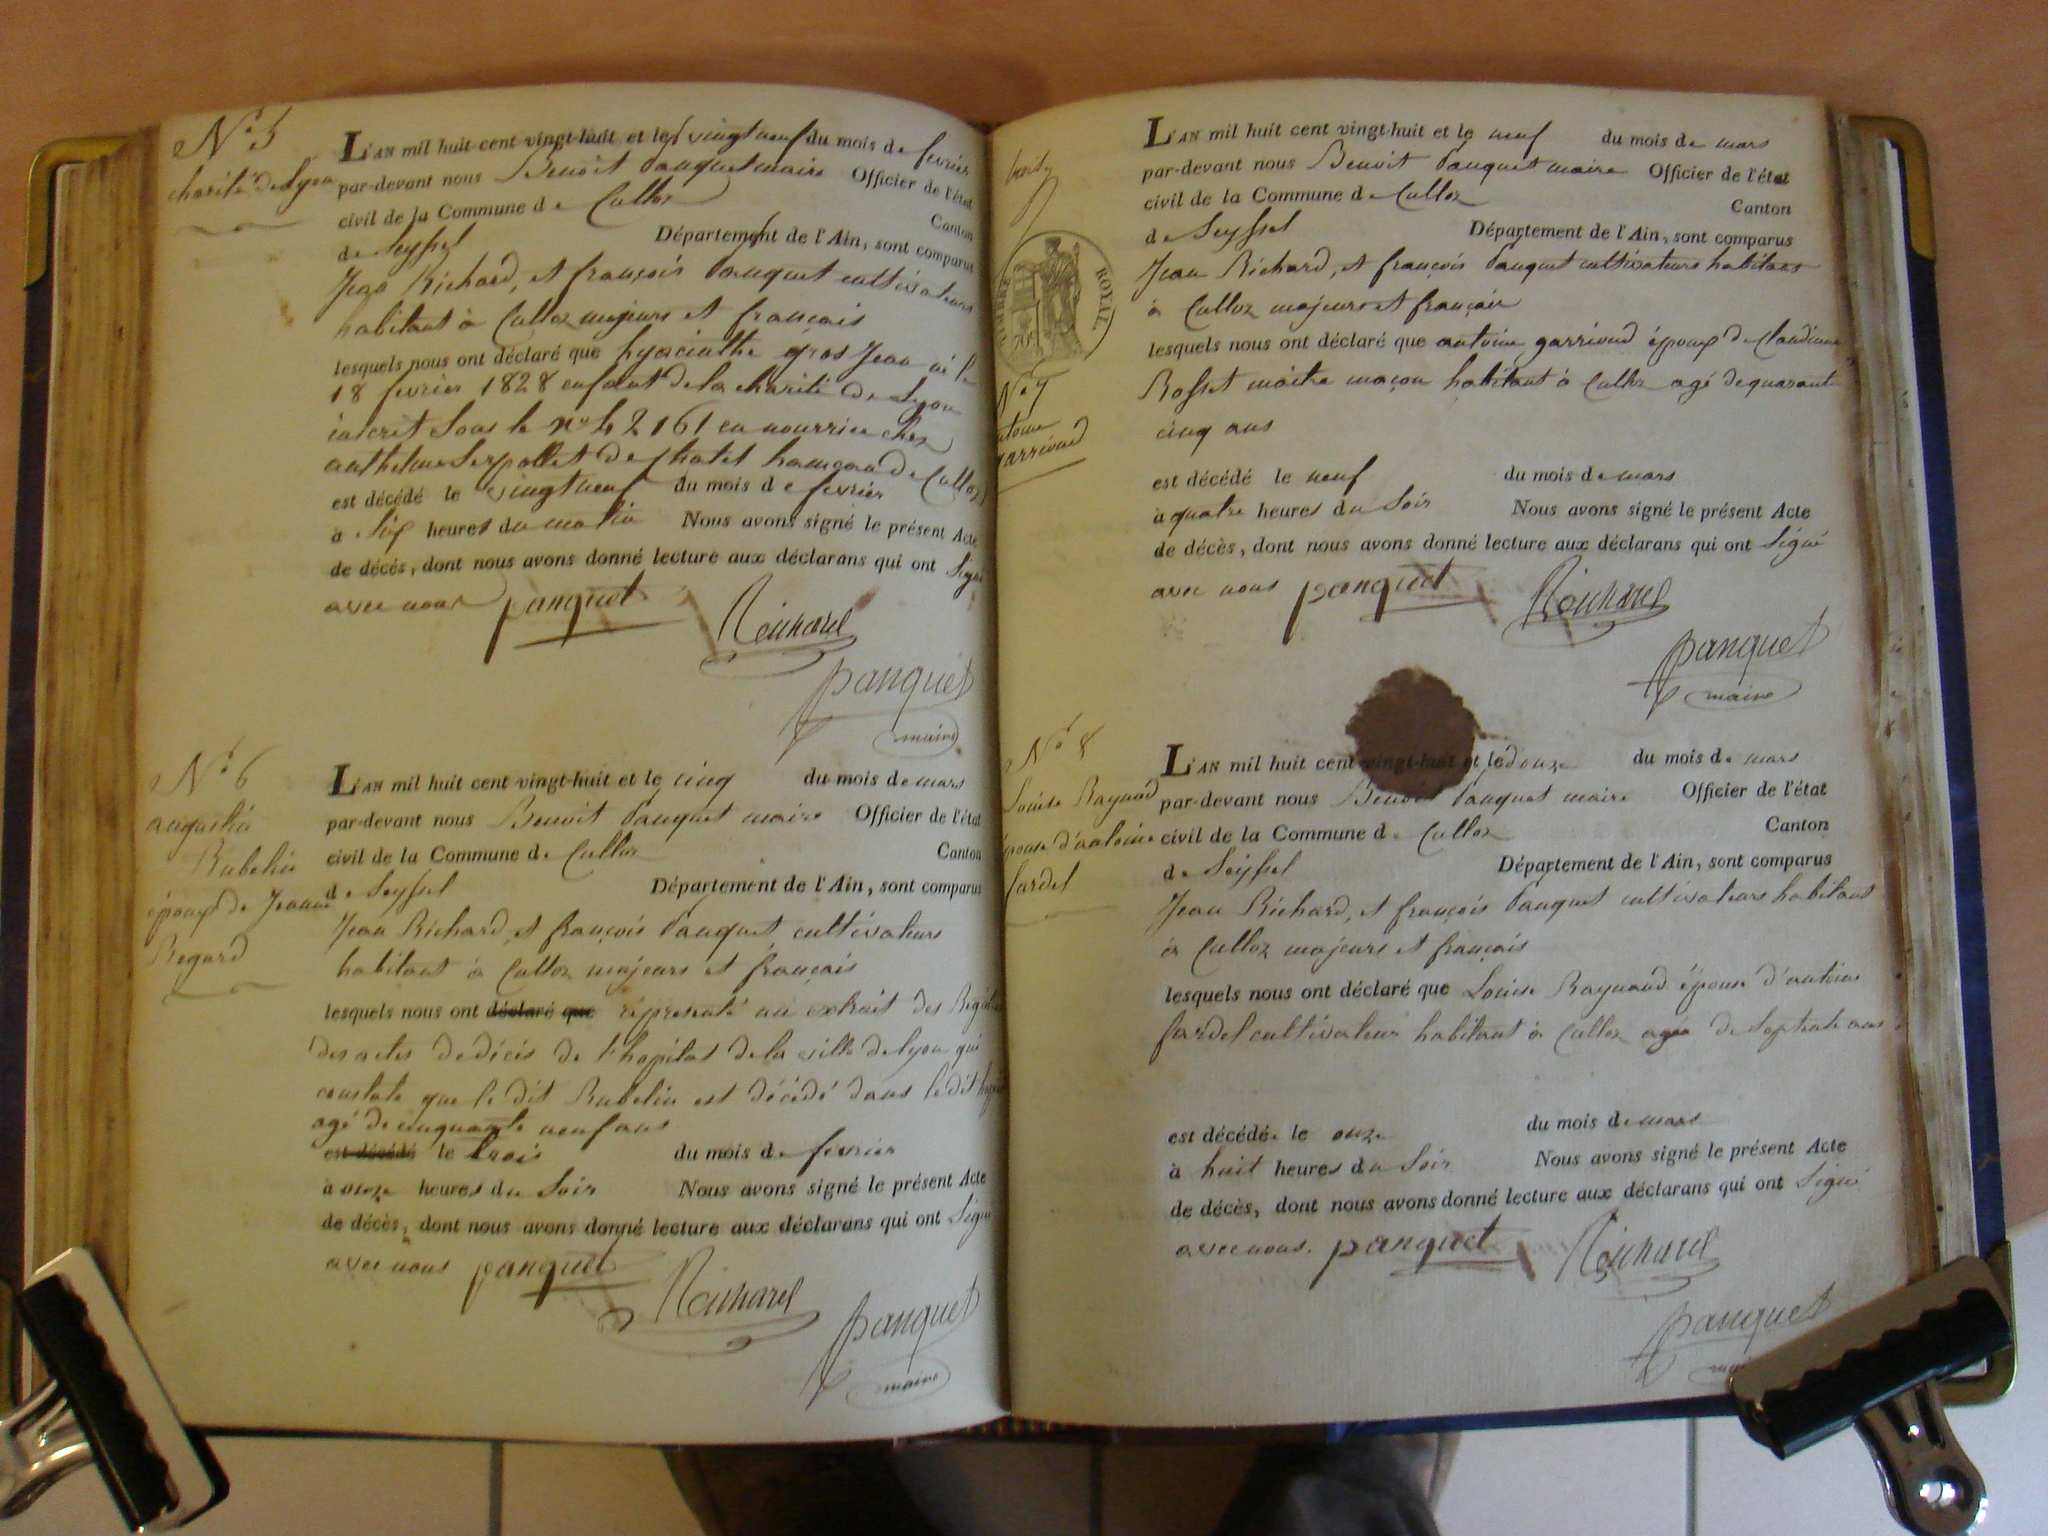 N.° 5
charité de Lyon
L'AN mil huit cent vingt-huit et le vingt neuf du mois de fevrier
par-devant nous Benoit Panquet maire Officier de l'état
civil de la Commune de Culloz Canton
de Seyssel Département de l'Ain, sont comparus
Jean Richard, et françois Panquet cultivateurs
habitant à Culloz majeurs et français
lesquels nous ont déclaré que hyacinthe gros Jean né le
18 fevrier 1828 enfant de la charité de Lyon
inscrit sous le n.° 42161 en nourrice chez
anthelme Serpollet de chatel hameau de Culloz
est décédé le vingt neuf du mois de fevrier
à six heures du matin Nous avons signé le présent Acte
de décès, dont nous avons donné lecture aux déclarans qui ont signé
avec nous panquet Richard
panquet
maire
N.° 6
augustin
Rubelin
époux de Jeanne
Regard
L'AN mil huit cent vingt-huit et le cinq du mois de mars
par-devant nous Benoit Panquet maire Officier de l'état
civil de la Commune de Culloz Canton
de Seyssel Département de l'Ain, sont comparus
Jean Richard, et françois Panquet cultivateurs
habitant à Culloz majeurs et français
lesquels nous ont déclaré que représenté un extrait des
des actes de décès de l'hopital de la ville de lyon qui
constate que le dit Rubelin est décédé dans le dit
agé de cinquante neuf ans
est décédé le trois du mois de fevrier
à onze heures du soir Nous avons signé le présent Acte
de décès, dont nous avons donné lecture aux déclarans qui ont signé
avec nous panquet Richard
panquet
maire
TIMBRE ROYAL.
N.° 7
antoine
garrioud
L'AN mil huit cent vingt-huit et le neuf du mois de mars
par-devant nous Benoit Panquet maire Officier de l'état
civil de la Commune de Culloz Canton
de Seyssel Département de l'Ain, sont comparus
Jean Richard, et françois Panquet cultivateurs habitans
à Culloz majeurs et français
lesquels nous ont déclaré que antoine garrioud époux de Claudine
Rosset maitre maçon habitant à Culloz agé de quarante
cinq ans
est décédé le neuf du mois de mars
à quatre heures du soir Nous avons signé le présent Acte
de décès, dont nous avons donné lecture aux déclarans qui ont signé
avec nous panquet Richard
panquet
maire
N.° 8
Louise Raynaud
épouse d'antoine
fardel
L'AN mil huit cent vingt-huit et le douze du mois de mars
par-devant nous Benoit Panquet maire Officier de l'état
civil de la Commune de Culloz Canton
de Seyssel Département de l'Ain, sont comparus
Jean Richard, et françois Panquet cultivateurs habitant
à Culloz majeurs et français
lesquels nous ont déclaré que Louise Raynaud épouse d'antoine
fardel cultivateur habitant à Culloz agée de septante ans
est décédée le onze du mois de mars
à huit heures du soir Nous avons signé le présent Acte
de décès, dont nous avons donné lecture aux déclarans qui ont signé
avec nous. panquet Richard
panquet